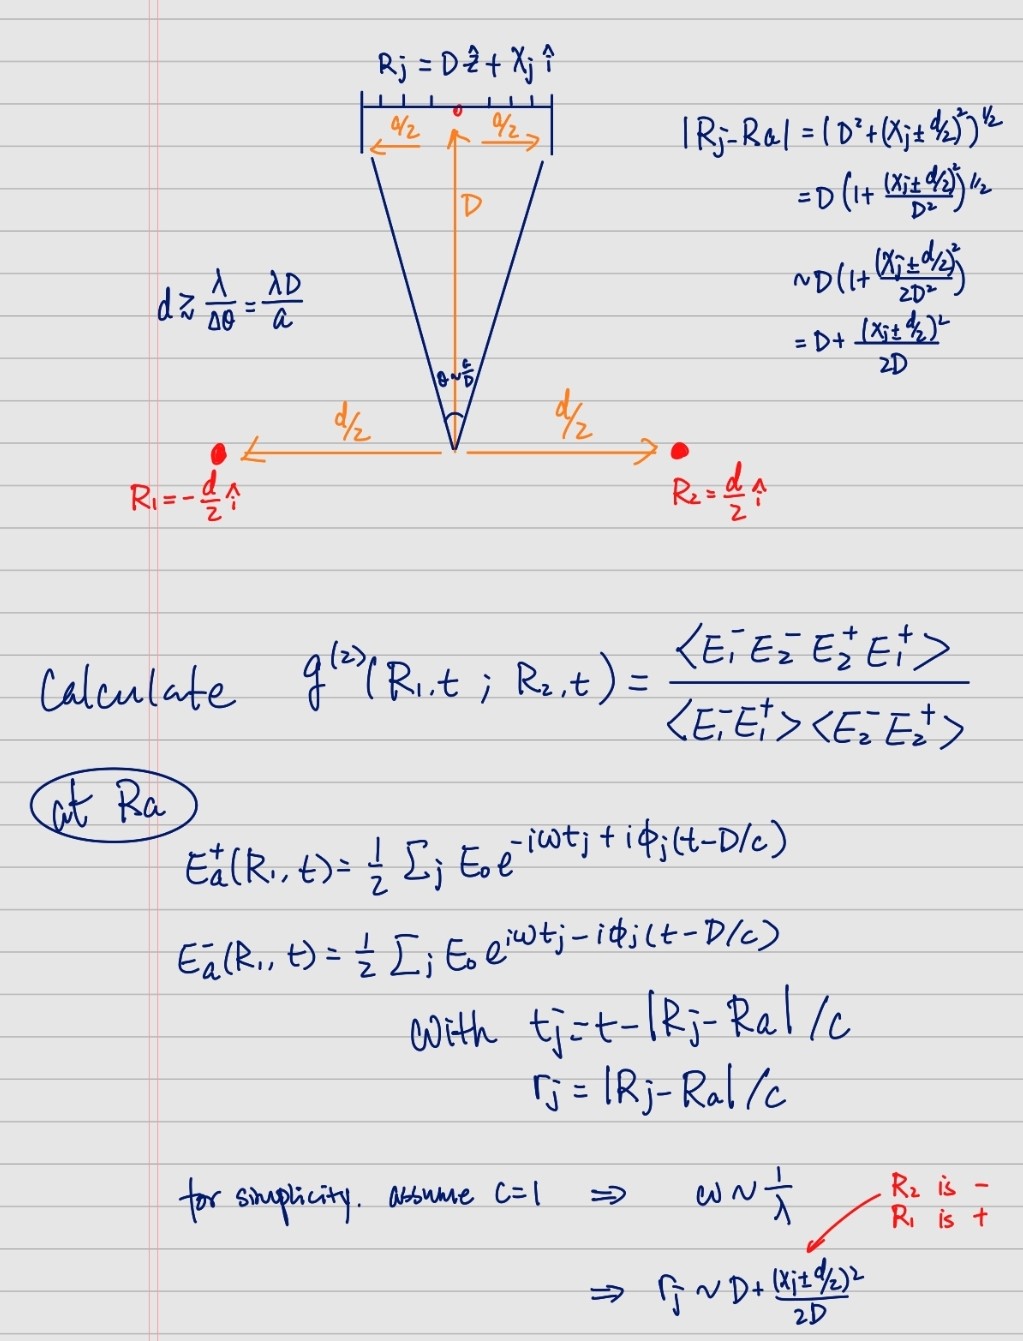 Rj = Dẑ + Xj î
a/2 a/2
D
|Rj-Ra| = (D²+(Xj±d/2)²)^1/2
= D(1+ (Xj±d/2)²/D²)^1/2
~D(1+ (Xj±d/2)²/2D²)
= D+ (Xj±d/2)²/2D
d ≳ λ/Δθ = λD/a
θ~a/D
d/2 d/2
R₁=-d/2 î
R₂=d/2 î
Calculate g⁽²⁾(R₁,t ; R₂,t) = <E₁⁻E₂⁻E₂⁺E₁⁺>/<E₁⁻E₁⁺><E₂⁻E₂⁺>
at Ra
Ea⁺(R₁, t)= 1/2 Σj E₀e^-iωtj+iϕj(t-D/c)
Ea⁻(R₁, t)= 1/2 Σj E₀e^iωtj-iϕj(t-D/c)
with tj=t-|Rj-Ra|/c
rj = |Rj-Ra|/c
for simplicity. assume c=1 ⇒ ω~1/λ
R₂ is -
R₁ is +
⇒ rj ~ D+ (Xj±d/2)²/2D